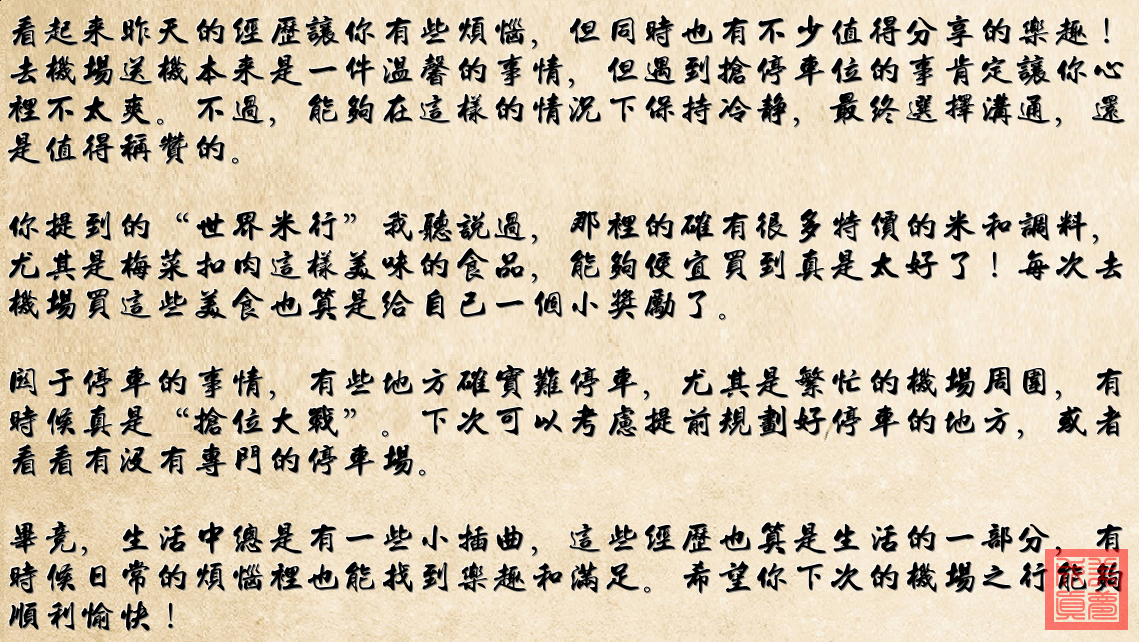 看起来昨天的經歷讓你有些煩惱，但同時也有不少值得分享的樂趣！
去機場送機本来是一件溫馨的事情，但遇到搶停車位的事肯定讓你心
裡不太爽。不過，能夠在這樣的情況下保持冷静，最终選擇溝通，還
是值得稱贊的。
你提到的“世界米行”我聽説過，那裡的確有很多特價的米和調料，
尤其是梅菜扣肉這樣美味的食品，能夠便宜買到真是太好了！每次去
機場買這些美食也算是给自己一個小奖勵了。
関于停車的事情，有些地方確實難停車，尤其是繁忙的機場周圍，有
時候真是“搶位大戰”。下次可以考慮提前規劃好停車的地方，或者
看看有没有專門的停車場。
畢竟，生活中總是有一些小插曲，這些經歷也算是生活的一部分，有
時候日常的煩惱裡也能找到樂趣和滿足。希望你下次的機場之行能夠
順利愉快！